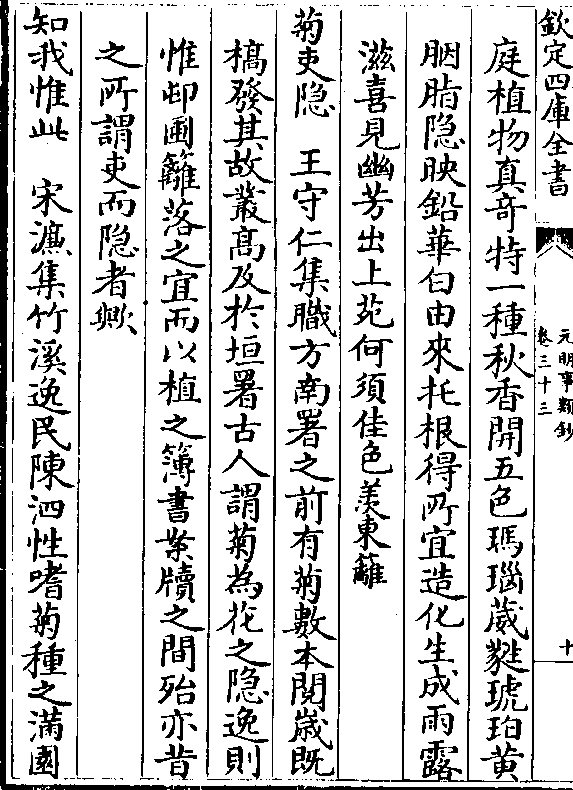 欽定四庫全書
元明事類鈔
卷三十三
十
庭植物真奇特一種秋香開五色瑪瑙葳蕤琥珀黄
胭脂隐映鉛華白由來托根得所宜造化生成雨露
滋喜見幽芳出上苑何須佳色羡東籬
菊吏隐　王守仁集職方南署之前有菊數本閱歳既
槁發其故叢髙及於垣署古人謂菊為花之隐逸則
惟邨圃籬落之宜而以植之簿書案牘之間殆亦昔
之所謂吏而隐者歟
知我惟此　宋濂集竹溪逸民陳泗性嗜菊種之滿園